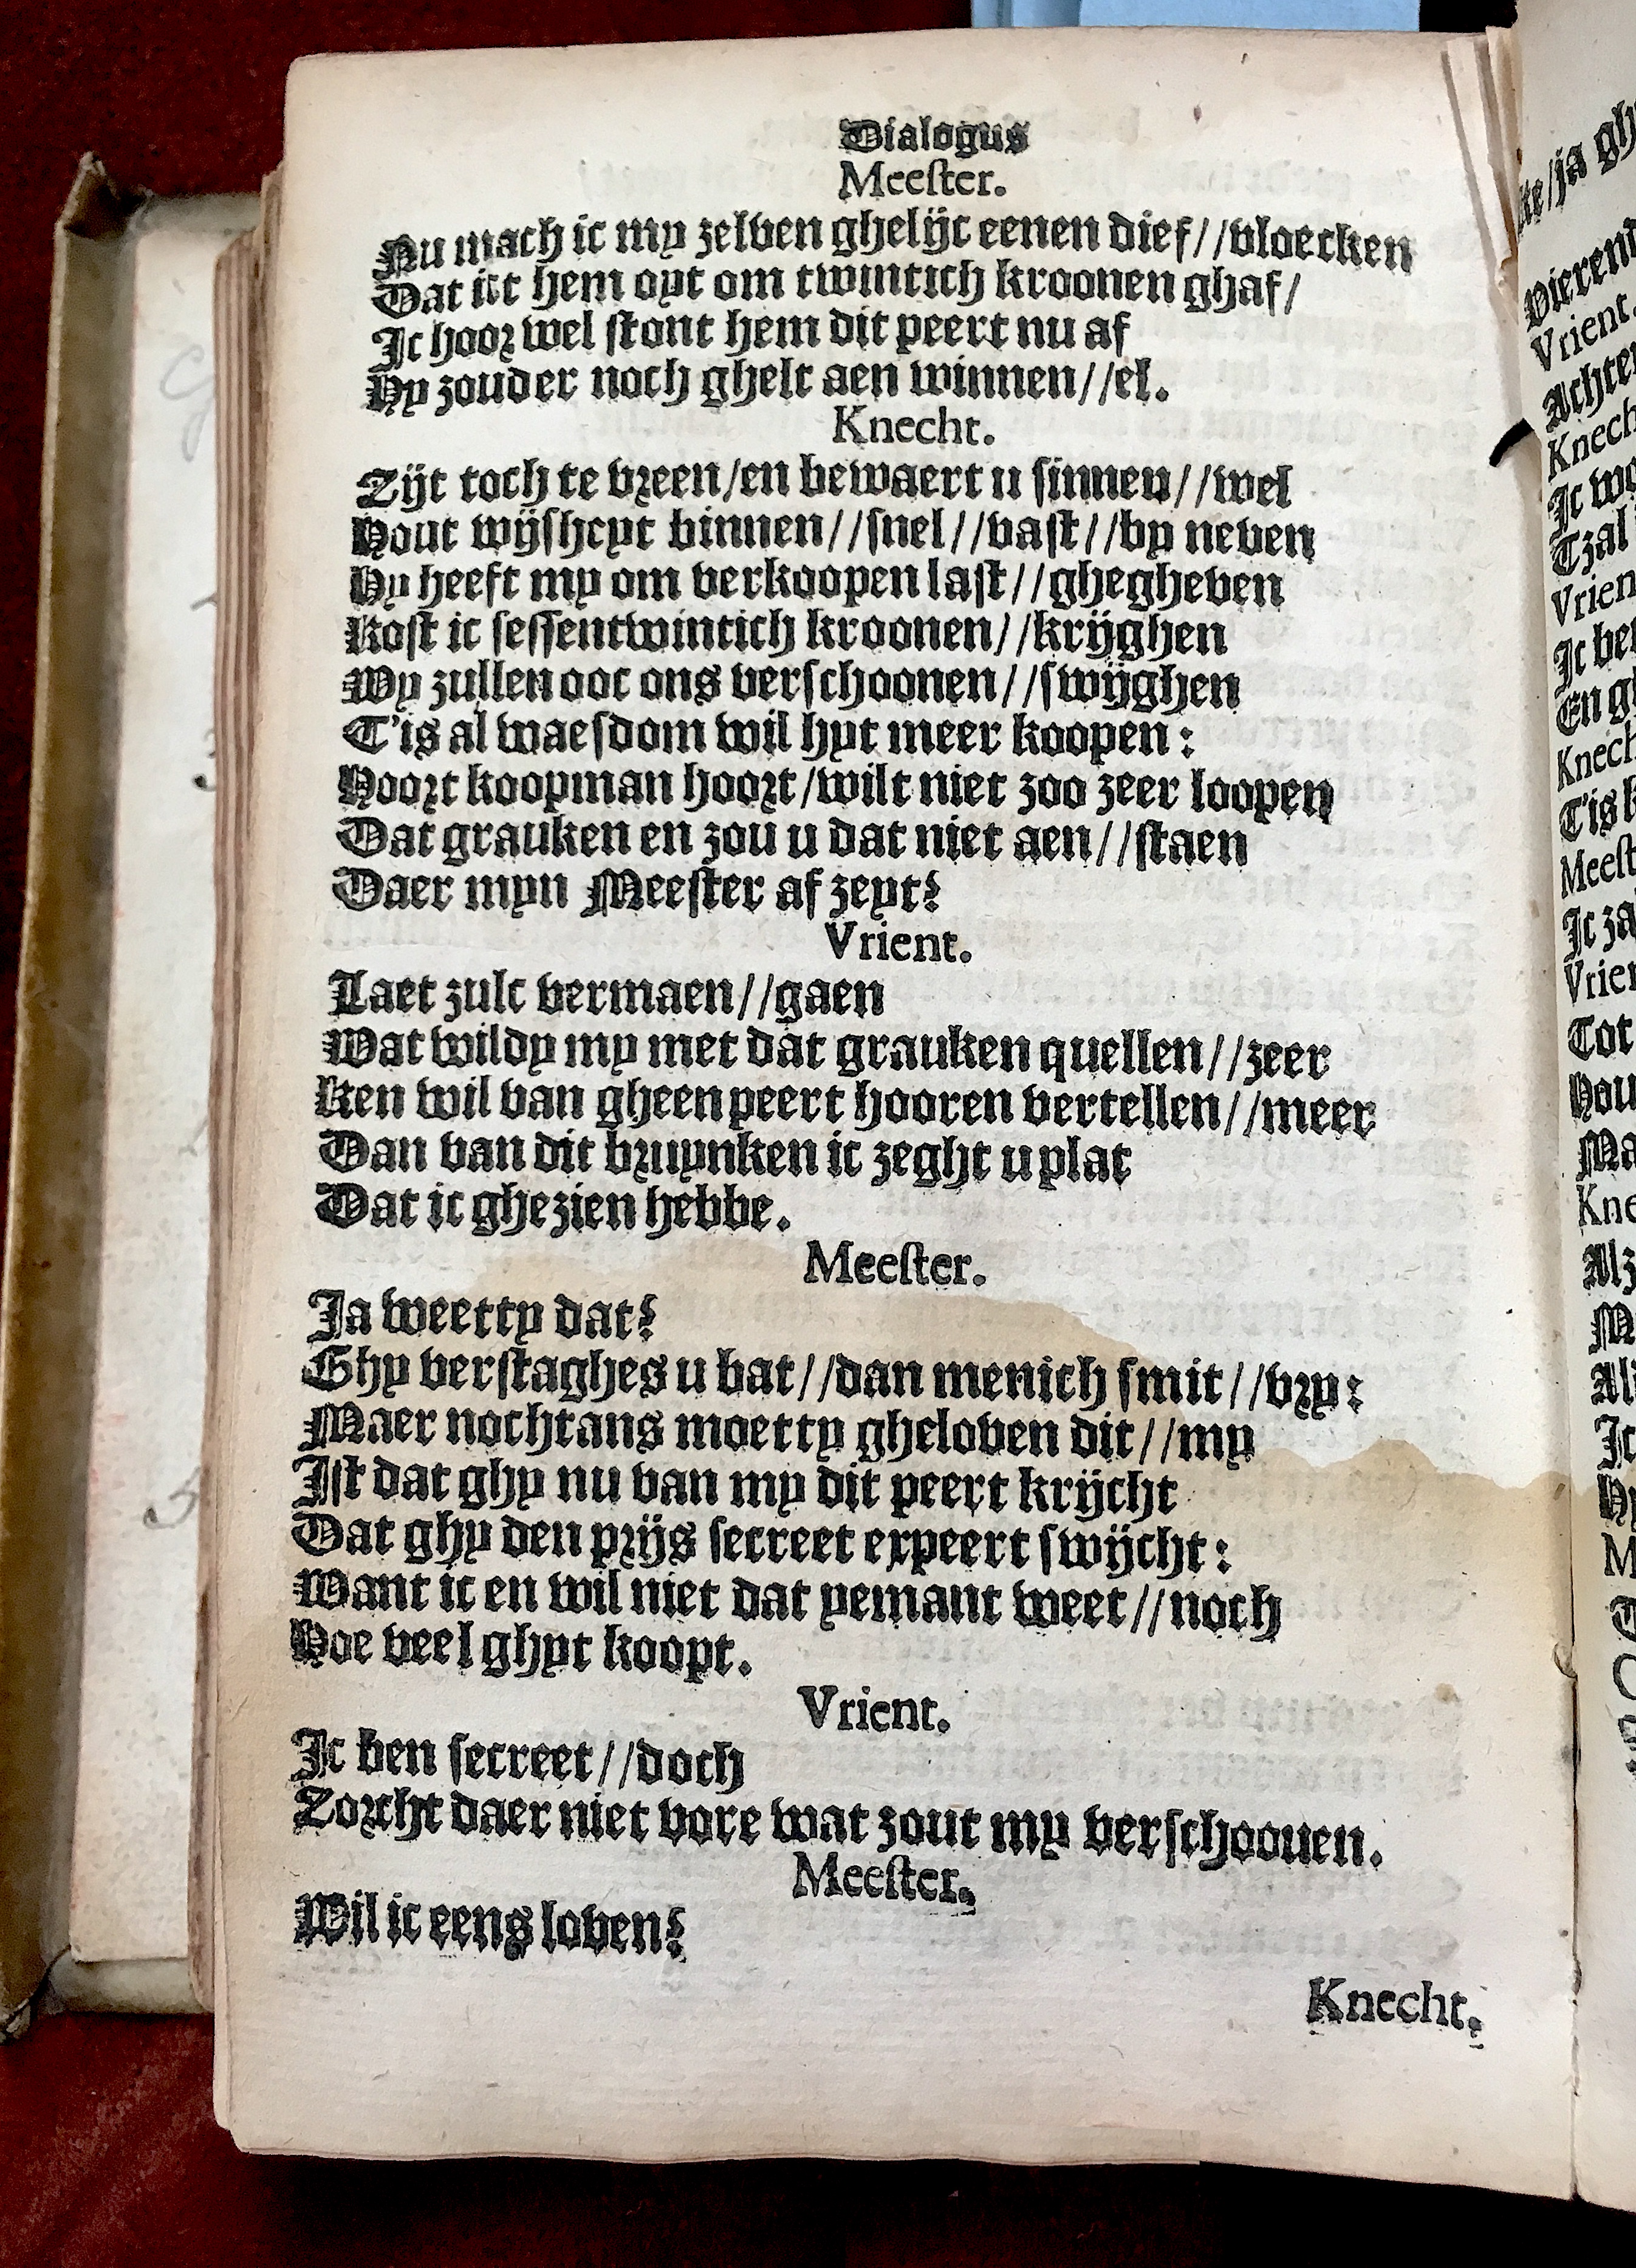 Dialogus
Meester.
Nu mach ic my zelven ghelijc eenen dief//vloecken
Dat ict hem oyt om twintich kroonen ghaf/
Ic hoor wel stont hem dit peert nu af
Hy zouder noch ghelt aen winnen//el.
Knecht.
Zijt toch te vreen/en bewaert u sinnen//wel
Hout wijsheyt binnen//snel//vast//by neven
Hy heeft my om verkoopen last//ghegheven
Kost ic sessentwintich kroonen//krijghen
Wy zullen ooc ons verschoonen//swijghen
T'is al waesdom wil hyt meer koopen:
Hoort koopman hoort/wilt niet zoo zeer loopen
Dat grauken en zou u dat niet aen//staen
Daer myn Meester af zeyt?
Vrient.
Laet zulc vermaen//gaen
Wat wildy my met dat grauken quellen//zeer
Ken wil van gheen peert hooren vertellen//meer
Dan van dit bruynken ic zeght u plat
Dat ic ghezien hebbe.
Meester.
Ja weetty dat?
Ghy verstaghes u bat//dan menich smit//vry:
Maer nochtans moetty gheloven dit//my
Ist dat ghy nu van my dit peert krijcht
Dat ghy den prijs secreet expeert swijcht:
Want ic en wil niet dat yemant weet//noch
Hoe veel ghyt koopt.
Vrient.
Ic ben secreet//doch
Zorcht daer niet vore wat zout my verschooven.
Meester.
Wil ic eens loven?
Knecht.